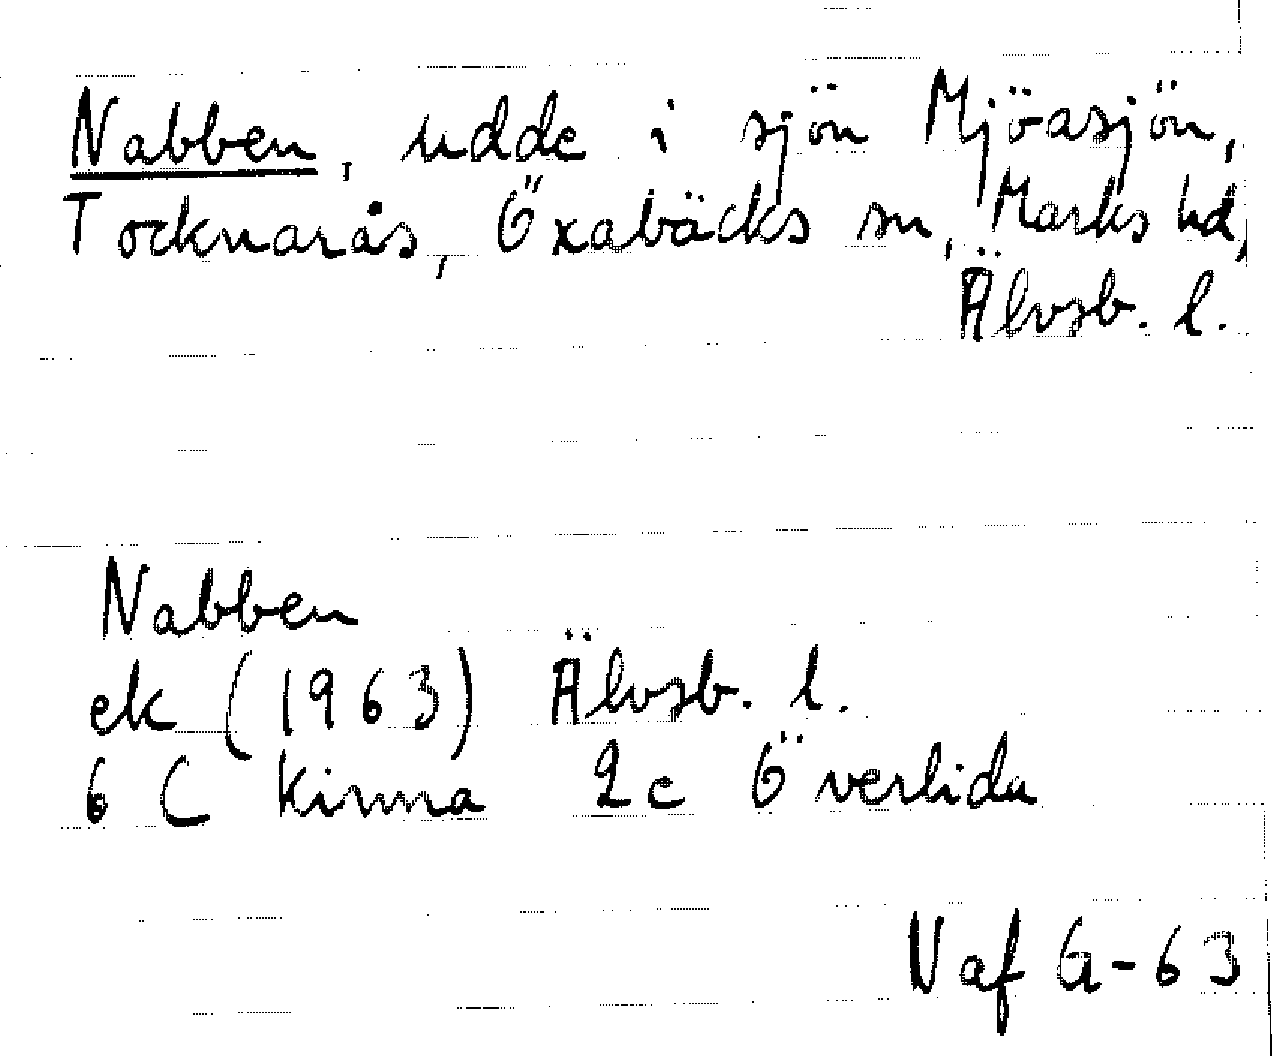 Nabben, udde i sjön Mjöasjön,
Tocknarås, Öxabäcks sn, Marks hd,
Älvsb. l.
Nabben
ek (1963) Älvsb. l.
6 C Kinna 2c Överlida
Naf G-63